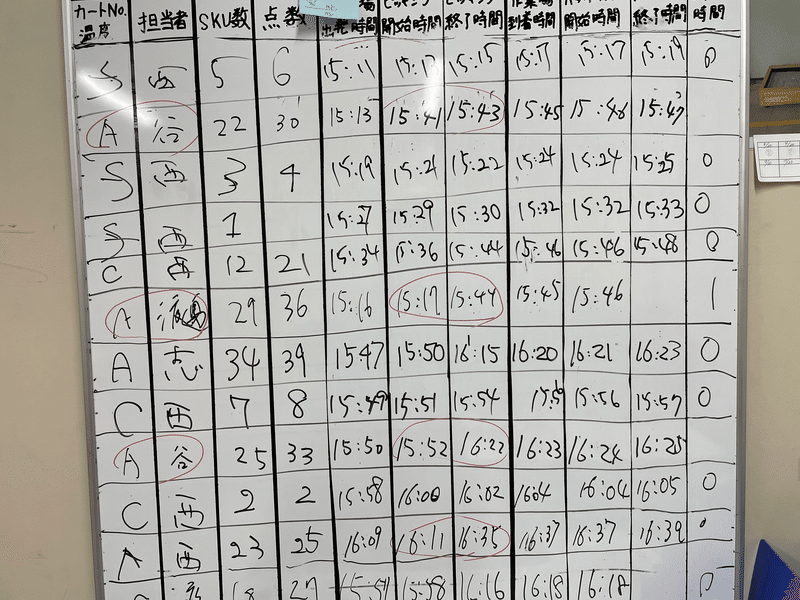 カートNo. 担当者 SKU数 点数 出発時間 開始時間 終了時間 到着時間 開始時間 終了時間 時間
温度
S 西 5 6 15:11 15:12 15:15 15:17 15:17 15:19 0
A 谷 22 30 15:13 15:41 15:43 15:45 15:46 15:47
S 西 3 4 15:19 15:21 15:22 15:24 15:24 15:25 0
S 西 1 15:27 15:29 15:30 15:32 15:32 15:33 0
C 西 12 21 15:34 15:36 15:44 15:46 15:46 15:48 0
A 29 36 15:16 15:17 15:44 15:45 15:46 1
A 志 34 39 15:47 15:50 16:15 16:20 16:21 16:23 0
C 西 7 8 15:49 15:51 15:54 15:56 15:57 0
A 谷 25 33 15:50 15:52 16:22 16:23 16:24 16:25
C 西 2 2 15:58 16:00 16:02 16:04 16:04 16:05 0
A 西 23 25 16:09 16:11 16:35 16:37 16:37 16:39 0
27 15:58 16:16 16:18 16:18 0